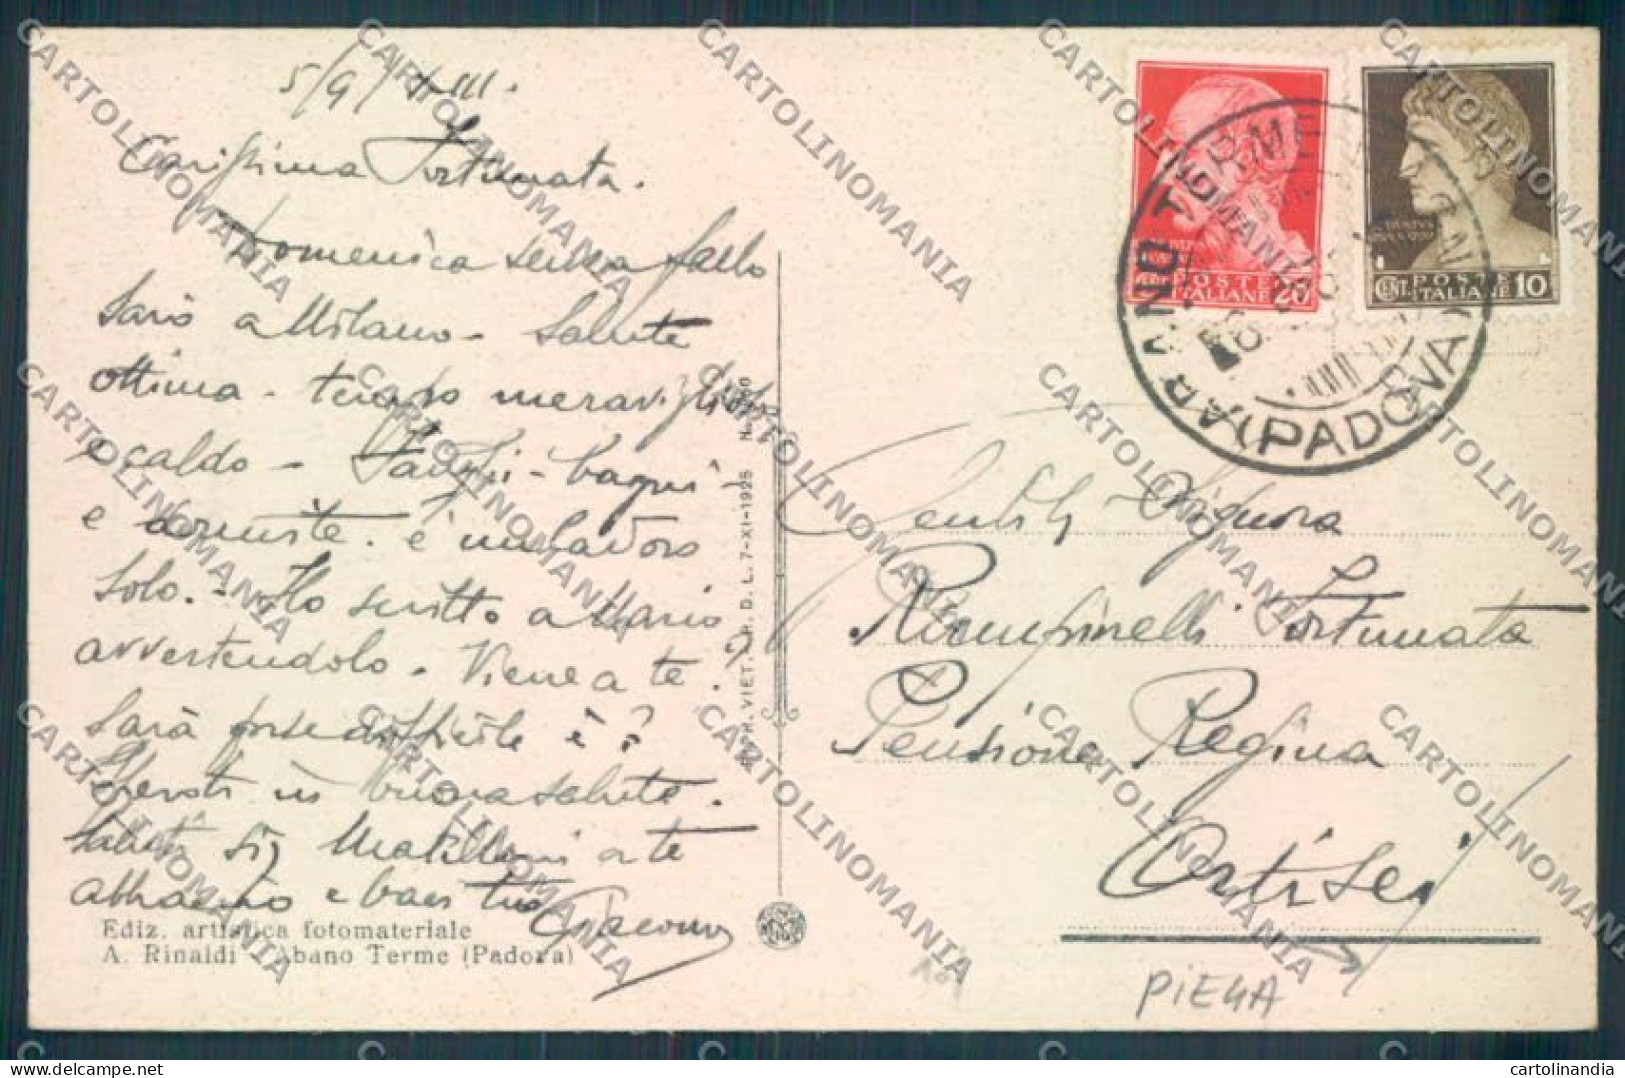 5/9/XIII.
Carissima Fortunata.
Domenica senza fallo
sarò a Milano - Salute
ottima - tempo meraviglioso
e caldo - Fanghi - bagni -
e
solo. - Ho scritto a Mario
avvertendolo. Viene a te?
Sarà forse difficile è?
in buona salute.
Saluti sig a te
abbraccio e baci tuo
Giacomo
Ediz. artistica fotomateriale
A. Rinaldi - Abano Terme (Padova)
VIET. R. D. L. 7-XI-1925 N.
POSTE ITALIANE 20
CENT. POSTE ITALIANE 10
ABANO TERME (PADOVA)
Gentile Signora
Fortunata
Pensione Regina
Ortisei
PIEGA
CARTOLINOMANIA
cartolinandia